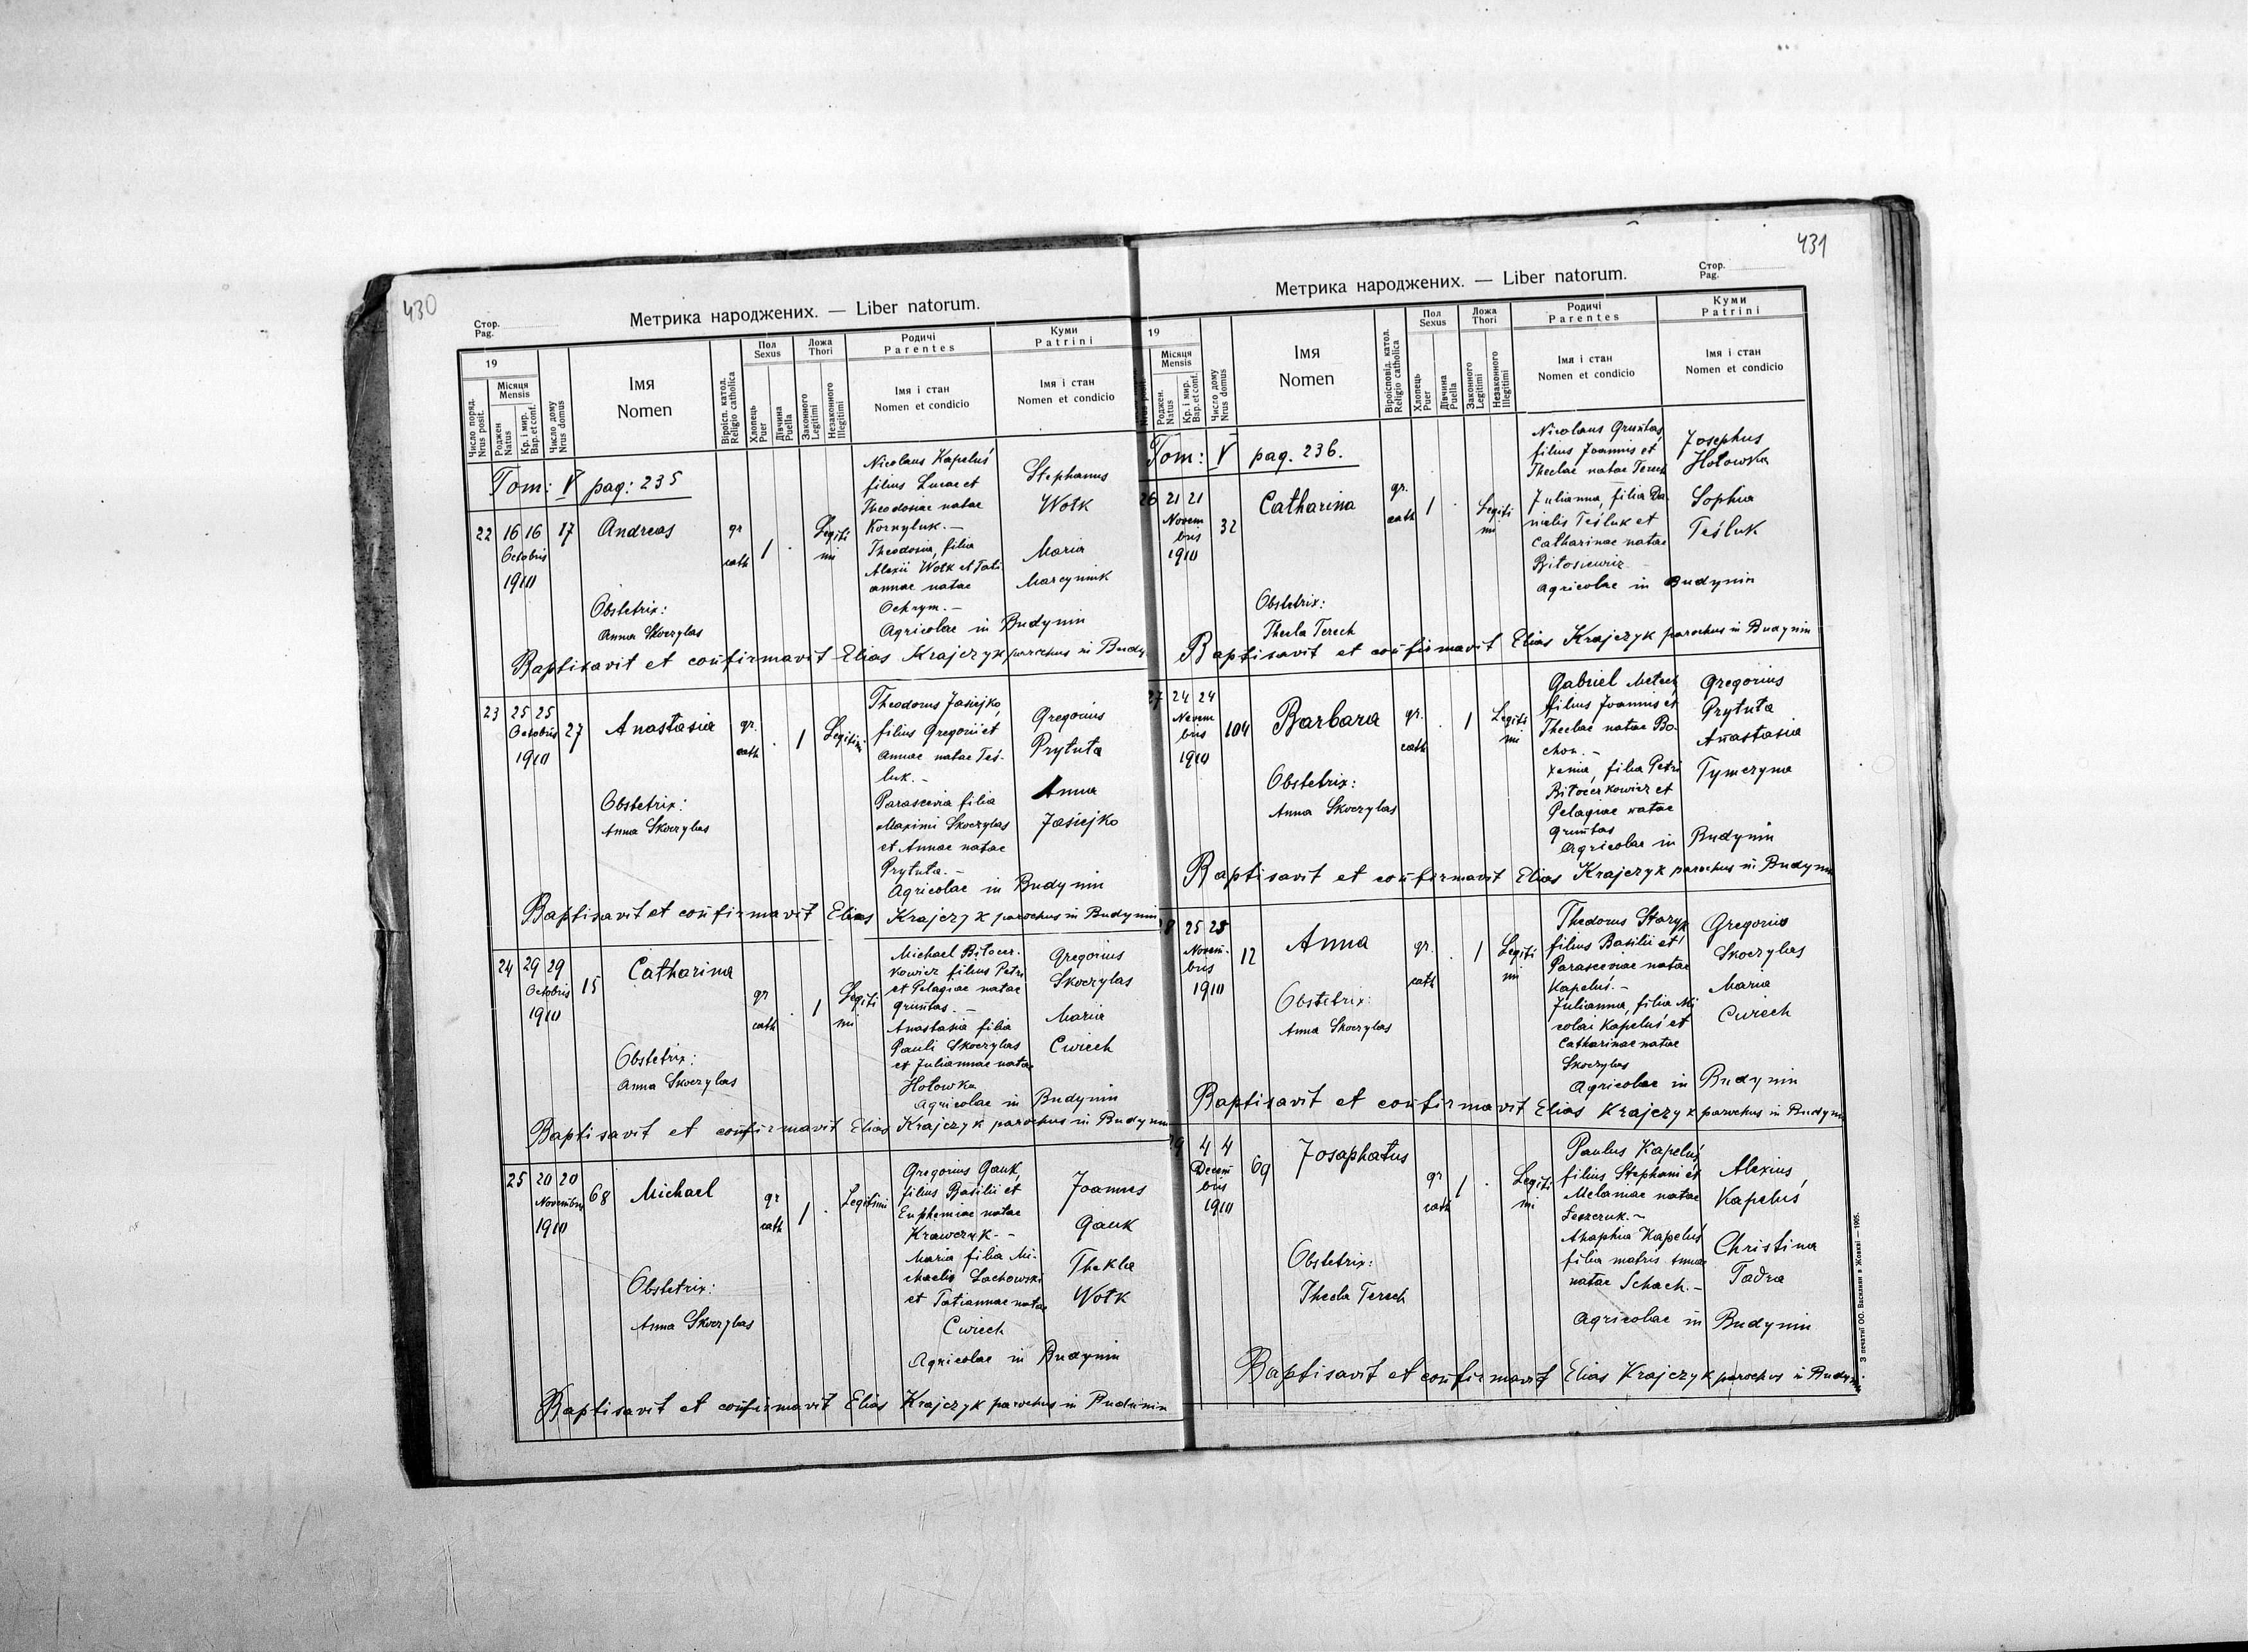 430
Стор.
Pag.
Метрика народжених. — Liber natorum.
19
Число поряд.
Nrus posit.
Місяця
Mensis
Роджен
Natus
Кр. і мир.
Bap. et conf.
Число дому
Nrus domus
Імя
Nomen
Віроісп. катол.
Religio catholica
Пол
Sexus
Хлопець
Puer
Дївчина
Puella
Ложа
Thori
Законного
Legitimi
Незаконного
Illegitimi
Родичі
Parentes
Імя і стан
Nomen et condicio
Куми
Patrini
Імя і стан
Nomen et condicio
Tom: V pag: 235
22 16 16 17 Andreas
Octobris
1910
gr
cath
1 .
Legiti
mi
Nicolaus Kapeluś
filius Lucae et
Theodosiae natae
Kornyluk. —
Theodosia, filia
Alexii Wołk et Tati
annae natae
Ochrym. —
Agricolae in Budynin
Stephanus
Wołk
Maria
Marcyniuk
Obstetrix:
Anna Skoczylas
Baptisavit et confirmavit Elias Krajczyk parochus in Budy
23 25 25 27 Anastasia
Octobris
1910
gr.
cath
. 1
Legitimi
Theodorus Jasiejko,
filius Gregorii et
Annae natae Teś-
luk. —
Parascevia filia
Maximi Skoczylas
et Annae natae
Prytuła. —
Agricolae in Budynin
Gregorius
Prytuła
Anna
Jasiejko
Obstetrix:
Anna Skoczylas
Baptisavit et confirmavit Elias Krajczyk parochus in Budynin
24 29 29 15 Catharina
Octobris
1910
gr
cath
. 1
Legiti
mi
Michael Biłocer-
kowicz filius Petri
et Pelagiae natae
Gruntas. —
Anastasia filia
Pauli Skoczylas
et Juliannae natae
Hołowka
Agricolae in Budynin
Gregorius
Skoczylas
Maria
Cwiech
Obstetrix:
Anna Skoczylas
Baptisavit et confirmavit Elias Krajczyk parochus in Budynin
25 20 20 68 Michael
Novembris
1910
gr
cath
1 .
Legitimi
Gregorius Gauk,
filius Basilii et
Euphemiae natae
Krawczyk. —
Maria filia Mi-
chaelis Lachowski
et Tatiannae natae
Cwiech
Agricolae in Budynin
Joannes
Gauk
Thekla
Wołk
Obstetrix:
Anna Skoczylas
Baptisavit et confirmavit Elias Krajczyk parochus in Budynin
431
Стор.
Pag.
Метрика народжених. — Liber natorum.
19
Nrus posit.
Місяця
Mensis
Роджен.
Natus
Кр. і мир.
Bap. et conf.
Число дому
Nrus domus
Імя
Nomen
Віроісповід. катол.
Religio catholica
Пол
Sexus
Хлопець
Puer
Дївчина
Puella
Ложа
Thori
Законного
Legitimi
Незаконного
Illegitimi
Родичі
Parentes
Імя і стан
Nomen et condicio
Куми
Patrini
Імя і стан
Nomen et condicio
Tom: V pag. 236.
26 21 21 32 Catharina
Novem
bris
1910
gr.
cath
1 .
Legiti
mi
Nicolaus Gruntas,
filius Joannis et
Theclae natae Terech
Julianna, filia Da
nielis Teśluk et
Catharinae natae
Biłosiewicz
Agricolae in Budynin
Josephus
Hołowka
Sophia
Teśluk
Obstetrix:
Thecla Terech
Baptisavit et confirmavit Elias Krajczyk parochus in Budynin
27 24 24 104 Barbara
Novem
bris
1910
gr.
cath
. 1
Legiti
mi
Gabriel Melech,
filius Joannis et
Theclae natae Bo-
chon. —
Xenia, filia Petri
Biłocerkowicz et
Pelagiae natae
Gruntas
Agricolae in Budynin
Gregorius
Prytuła
Anastasia
Tymczyna
Obstetrix:
Anna Skoczylas
Baptisavit et confirmavit Elias Krajczyk parochus in Budynin
28 25 25 12 Anna
Novem-
bris
1910
gr.
cath
. 1
Legiti
mi
Thedorus Staryk
filius Basilii et
Parasceviae natae
Kapeluś. —
Julianna, filia Ni
colai Kapeluś et
Catharinae natae
Skoczylas
Agricolae in Budynin
Gregorius
Skoczylas
Maria
Cwiech
Obstetrix:
Anna Skoczylas
Baptisavit et confirmavit Elias Krajczyk parochus in Budynin
29 4 4 69 Josaphatus
Decem
bris
1910
gr
cath
1 .
Legiti
mi
Paulus Kapeluś,
filius Stephani et
Melaniae natae
Leszczuk. —
Ahaphia Kapeluś
filia matris Annae
natae Schach. —
Agricolae in Budynin
Alexius
Kapeluś
Christina
Tadra
Obstetrix:
Thecla Terech
Baptisavit et confirmavit Elias Krajczyk parochus in Budynin
З печатнї ОО. Василиян в Жовкві — 1905.